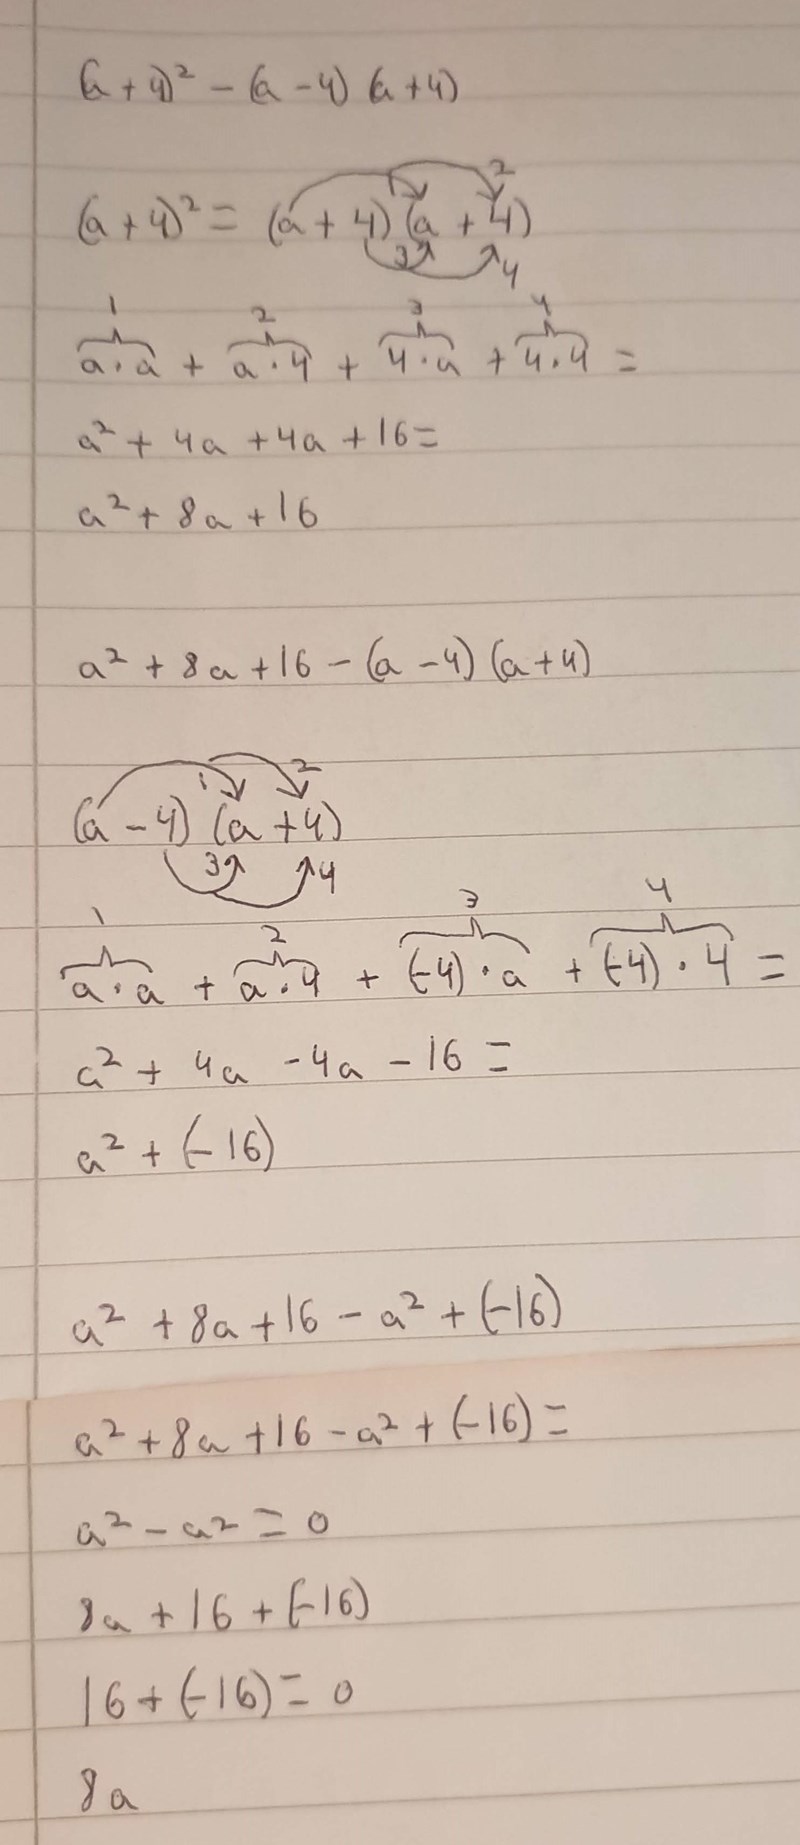 (a+4)² - (a-4) (a+4)
(a+4)² = (a+4)(a+4)
1 2 3 4
1 2 3 4
a·a + a·4 + 4·a + 4·4 =
a² + 4a + 4a + 16 =
a² + 8a + 16
a² + 8a + 16 - (a-4) (a+4)
1 2
(a-4) (a+4)
3 4
1 2 3 4
a·a + a·4 + (-4)·a + (-4)·4 =
a² + 4a - 4a - 16 =
a² + (-16)
a² + 8a + 16 - a² + (-16)
a² + 8a + 16 - a² + (-16) =
a² - a² = 0
8a + 16 + (-16)
16 + (-16) = 0
8a